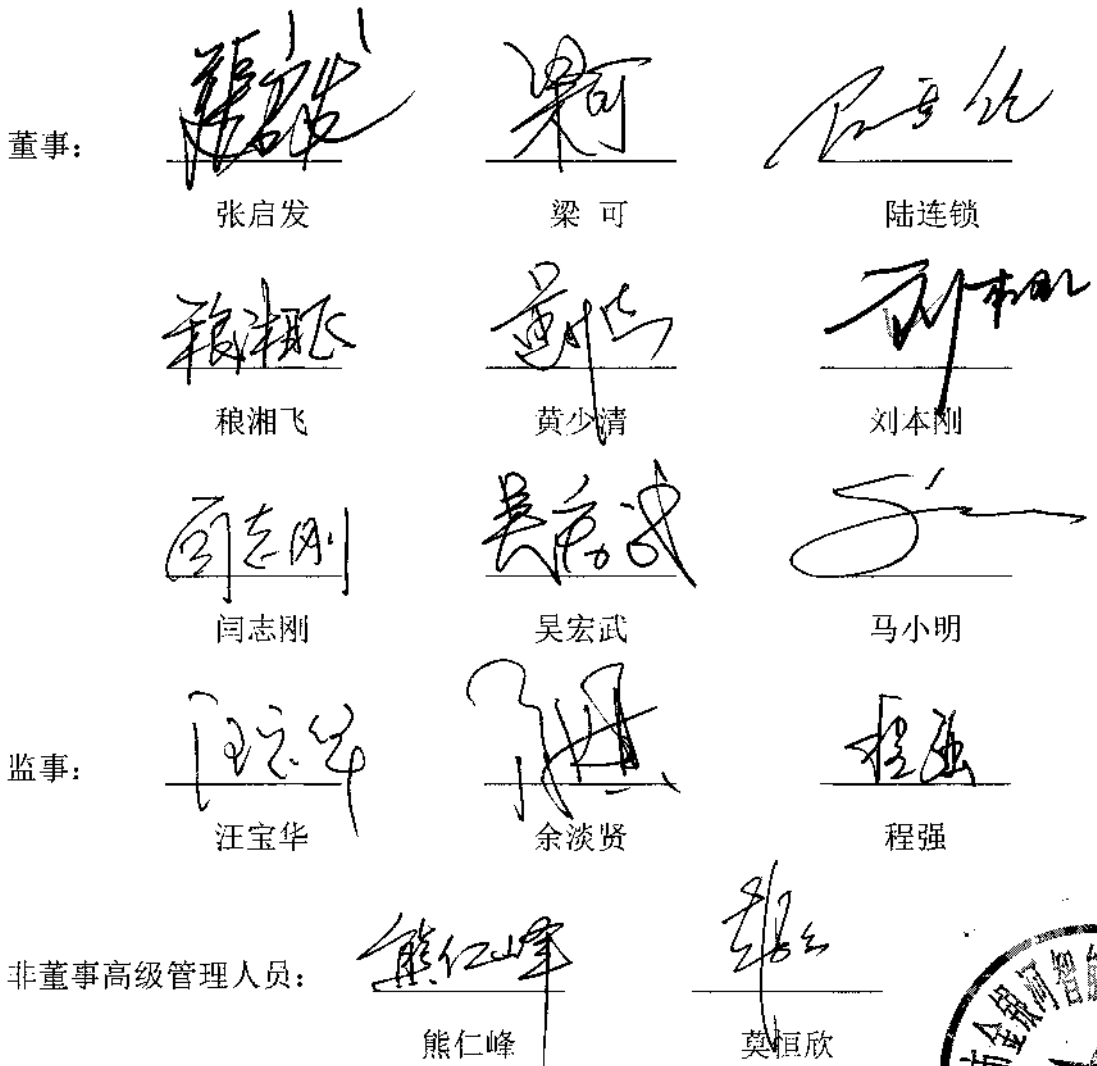 董事：
张启发 梁 可 陆连锁
稂湘飞 黄少清 刘本刚
闫志刚 吴宏武 马小明
监事：
汪宝华 余淡贤 程强
非董事高级管理人员：
熊仁峰 莫恒欣
市金银河智能